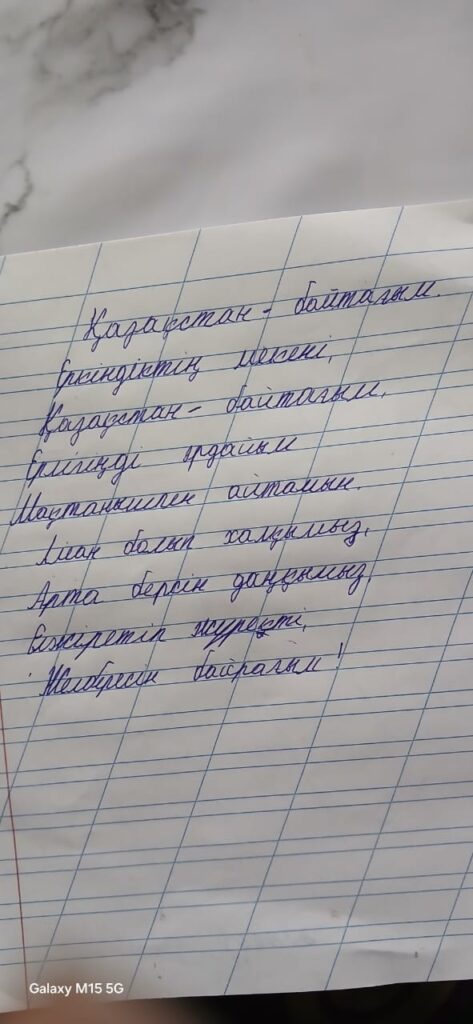 Қазақстан - байтағым.
Еркіндіктің мекені,
Қазақстан - байтағым,
Ерлігіңді әрдайым
Мақтанышпен айтамын.
Аман болып халқымыз,
Арта берсін даңқымыз,
Елжіретіп жүректі,
Желбіресін байрағым!
Galaxy M15 5G